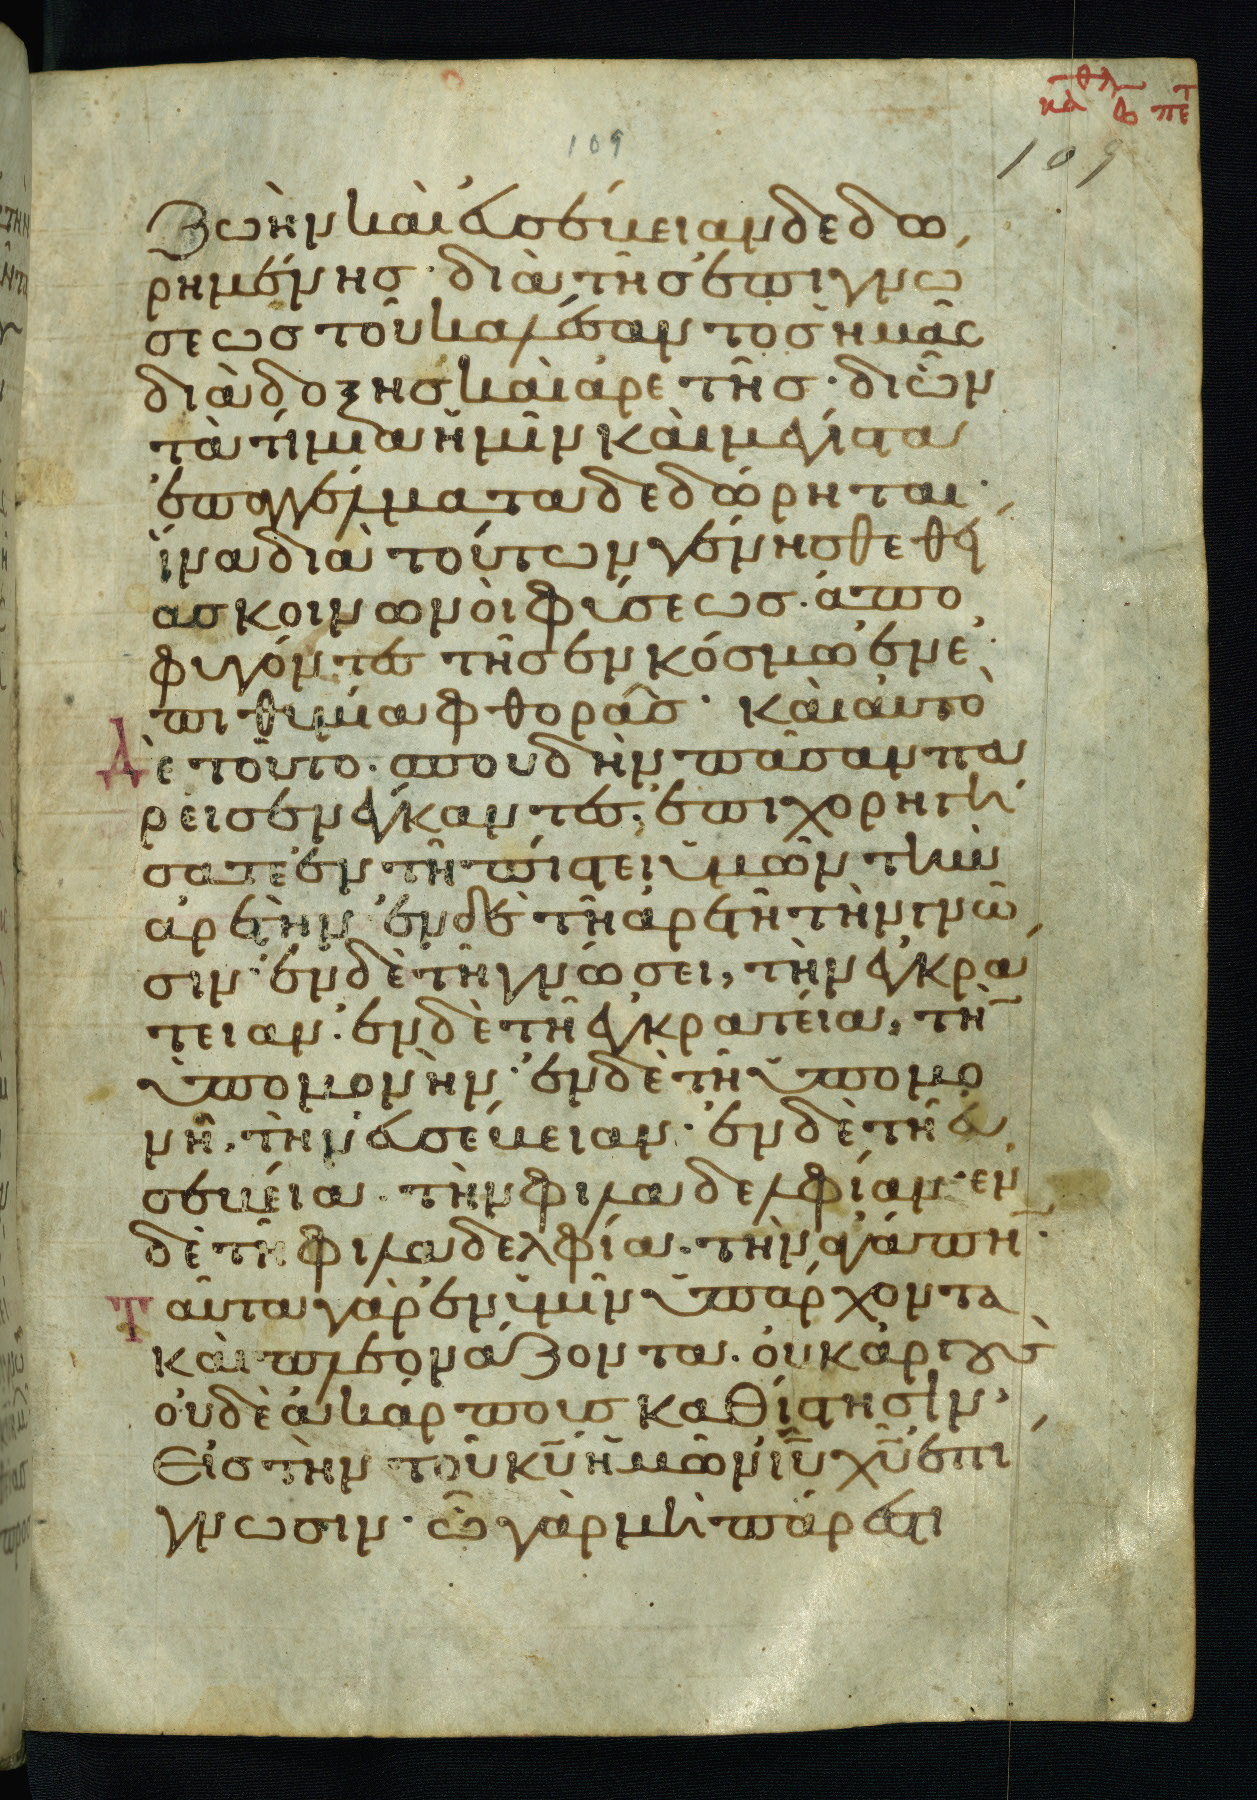 109
109
ζωὴν καὶ εὐσέβειαν δεδω
ρημένης· διὰ τῆς ἐπιγνώ
σεως τοῦ καλέσαντος ἡμᾶς
διὰ δόξης καὶ ἀρετῆς· δι ὧν
τὰ τίμια ἡμῖν καὶ μέγιστα
ἐπαγγέλματα δεδώρηται·
ἵνα διὰ τούτων γένησθε θεί
ας κοινωνοὶ φύσεως· ἀπο
φυγόντες τῆς ἐν κόσμω ἐν ἐ
πιθυμία φθορᾶς· καὶ αὐτὸ
Δὲ τοῦτο· σπουδὴν πᾶσαν πα
ρεισενέγκαντες· ἐπιχορηγή
σατε ἐν τῆ πίστει ὑμῶν τὴν
ἀρετὴν· ἐν δὲ τῆ ἀρετῆ τὴν γνῶ
σιν· ἐν δὲ τῆ γνώσει, τὴν ἐγκρά
τειαν· ἐν δὲ τῆ ἐγκρατεία, τὴ̅
ὑπομονὴν· ἐν δὲ τῆ ὑπομο
νῆ, τὴν εὐσέβειαν· ἐν δὲ τῆ εὐ
σεβεία· τὴν φιλαδελφίαν· εν
δὲ τῆ φιλαδελφία· τὴν ἀγάπη̅·
Ταῦτα γὰρ ἐν ὑμῖν ὑπάρχοντα
καὶ πλεονάζοντα· οὐκ ἀργοὺς
οὐδὲ ἀκάρπους καθίστησιν·
Εἰς τὴν τοῦ κ̅υ̅ ἡμῶν ι̅υ̅ χ̅υ̅ ἐπί
γνωσιν· ὧ γὰρ μὴ πάρεστι